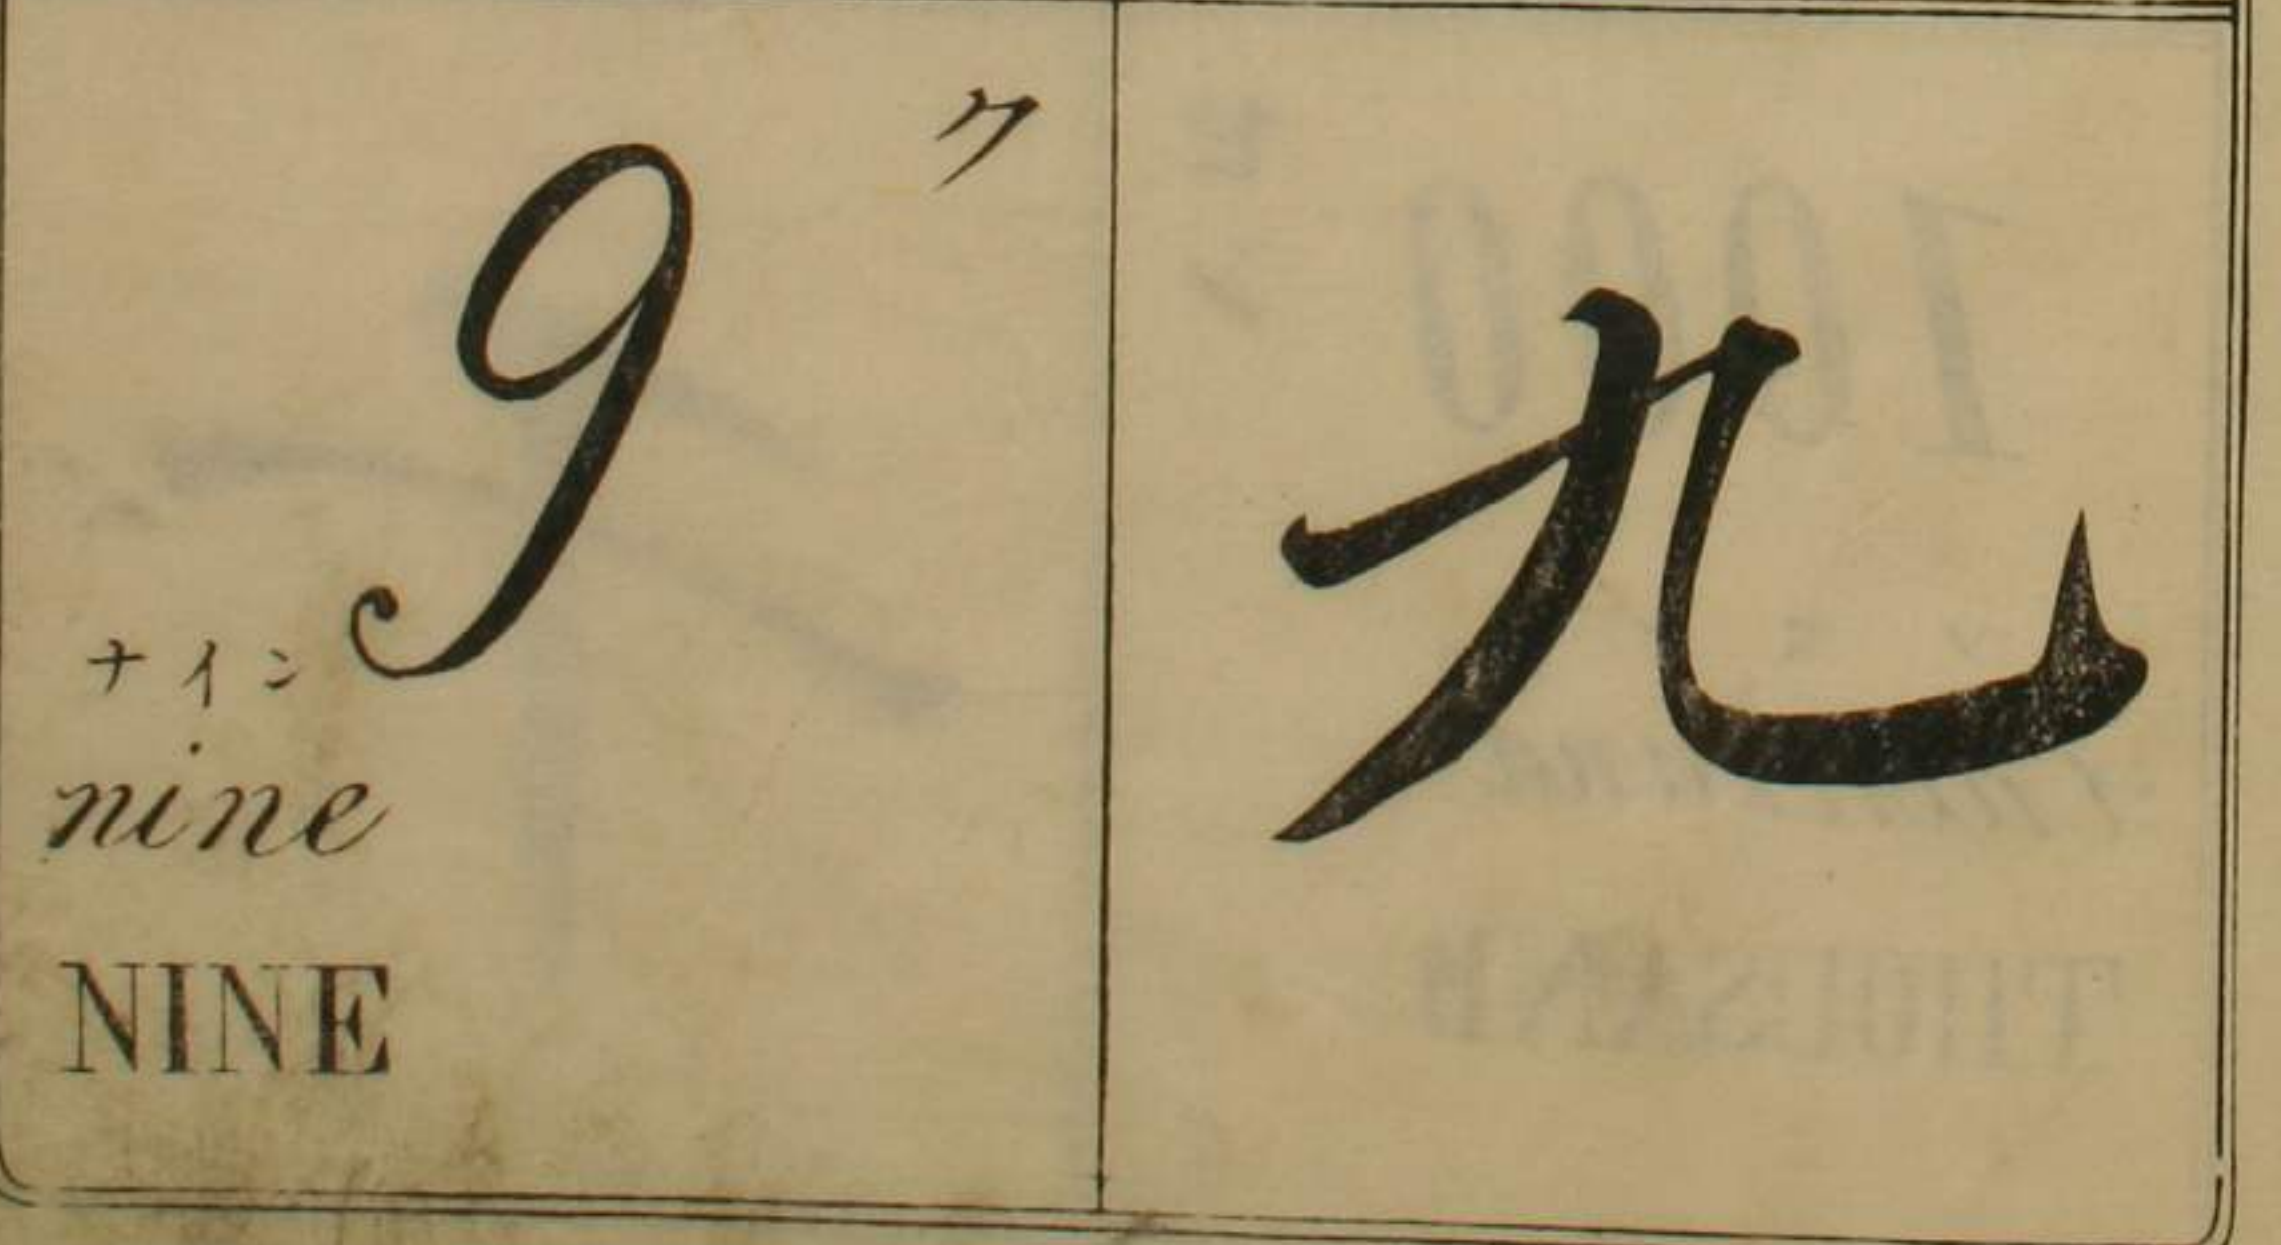 九
ク
9
ナイン
nine
NINE